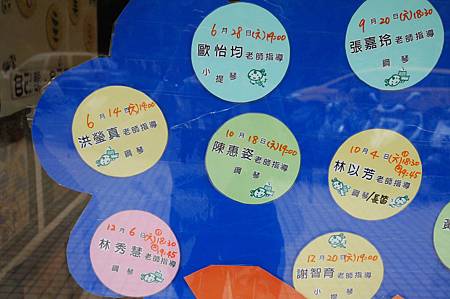 6月28日(六)19:00
歐怡均老師指導
小提琴
9月20日(六)18:30
張嘉玲老師指導
鋼琴
6月14日(六)19:00
洪瑩真老師指導
鋼琴
10月18日(六)19:00
陳惠姿老師指導
鋼琴
10月4日(六)①18:30
②19:45
林以芳老師指導
鋼琴/長笛
12月6日(六)①18:30
②19:45
林秀慧老師指導
鋼琴
12月20日(六)19:00
謝智育老師指導